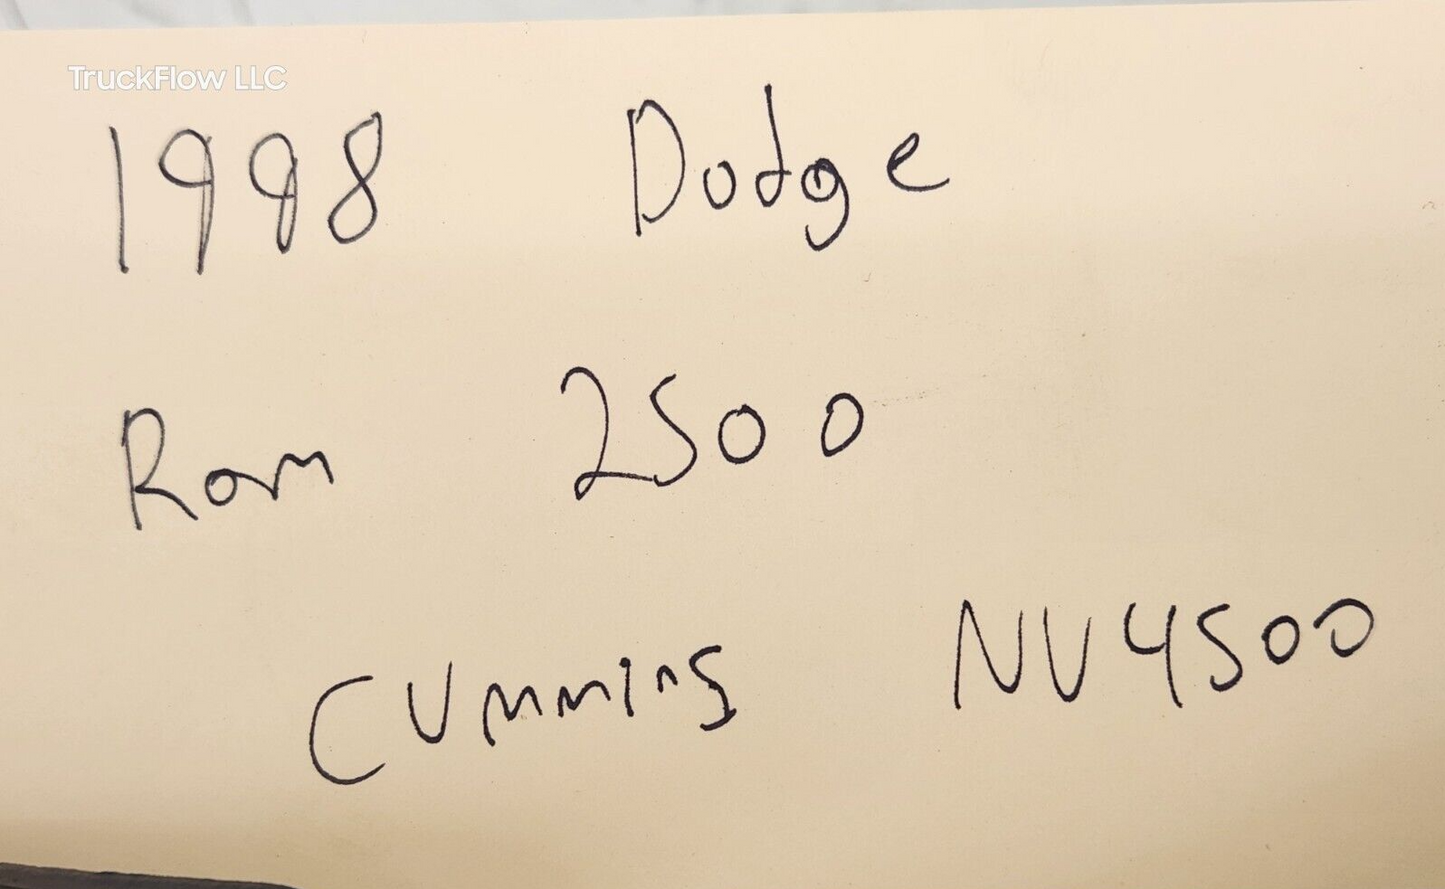 TruckFlow LLC
1998 Dodge
Ram 2500
Cummins NV4500